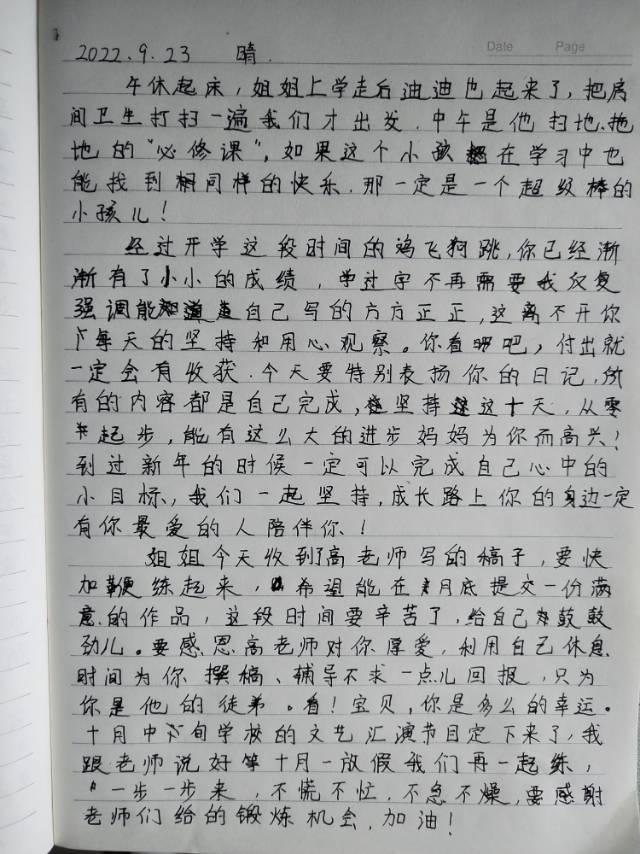 Date Page
2022.9.23 晴.
午休起床，姐姐上学走后油迪也起来了，把房
间卫生打扫一遍我们才出发.中午是他扫地.拖
地的“必修课”，如果这个小孩在学习中也
能找到相同样的快乐.那一定是一个超级棒的
小孩儿！
经过开学这段时间的鸡飞狗跳，你已经渐
渐有了小小的成绩，学过字不再需要我反复
强调能知道自己写的方方正正，这离不开你
每天的坚持和用心观察。你看吧，付出就
一定会有收获.今天要特别表扬你的日记，所
有的内容都是自己完成，坚持这十天，从零
起步，能有这么大的进步妈妈为你而高兴！
到过新年的时候一定可以完成自己心中的
小目标，我们一起坚持，成长路上你的身边一定
有你最爱的人陪伴你！
姐姐今天收到了高老师写的稿子，要快
加鞭练起来，希望能在月底提交一份满
意的作品，这段时间要辛苦了，给自己鼓鼓
劲儿。要感恩高老师对你厚爱，利用自己休息
时间为你撰稿、辅导不求一点儿回报，只为
你是他的徒弟。看！宝贝，你是多么的幸运。
十月中下旬学校的文艺汇演节目定下来了，我
跟老师说好等十月一放假我们再一起练，
一步一步来，不慌不忙，不急不燥，要感谢
老师们给的锻炼机会.加油！